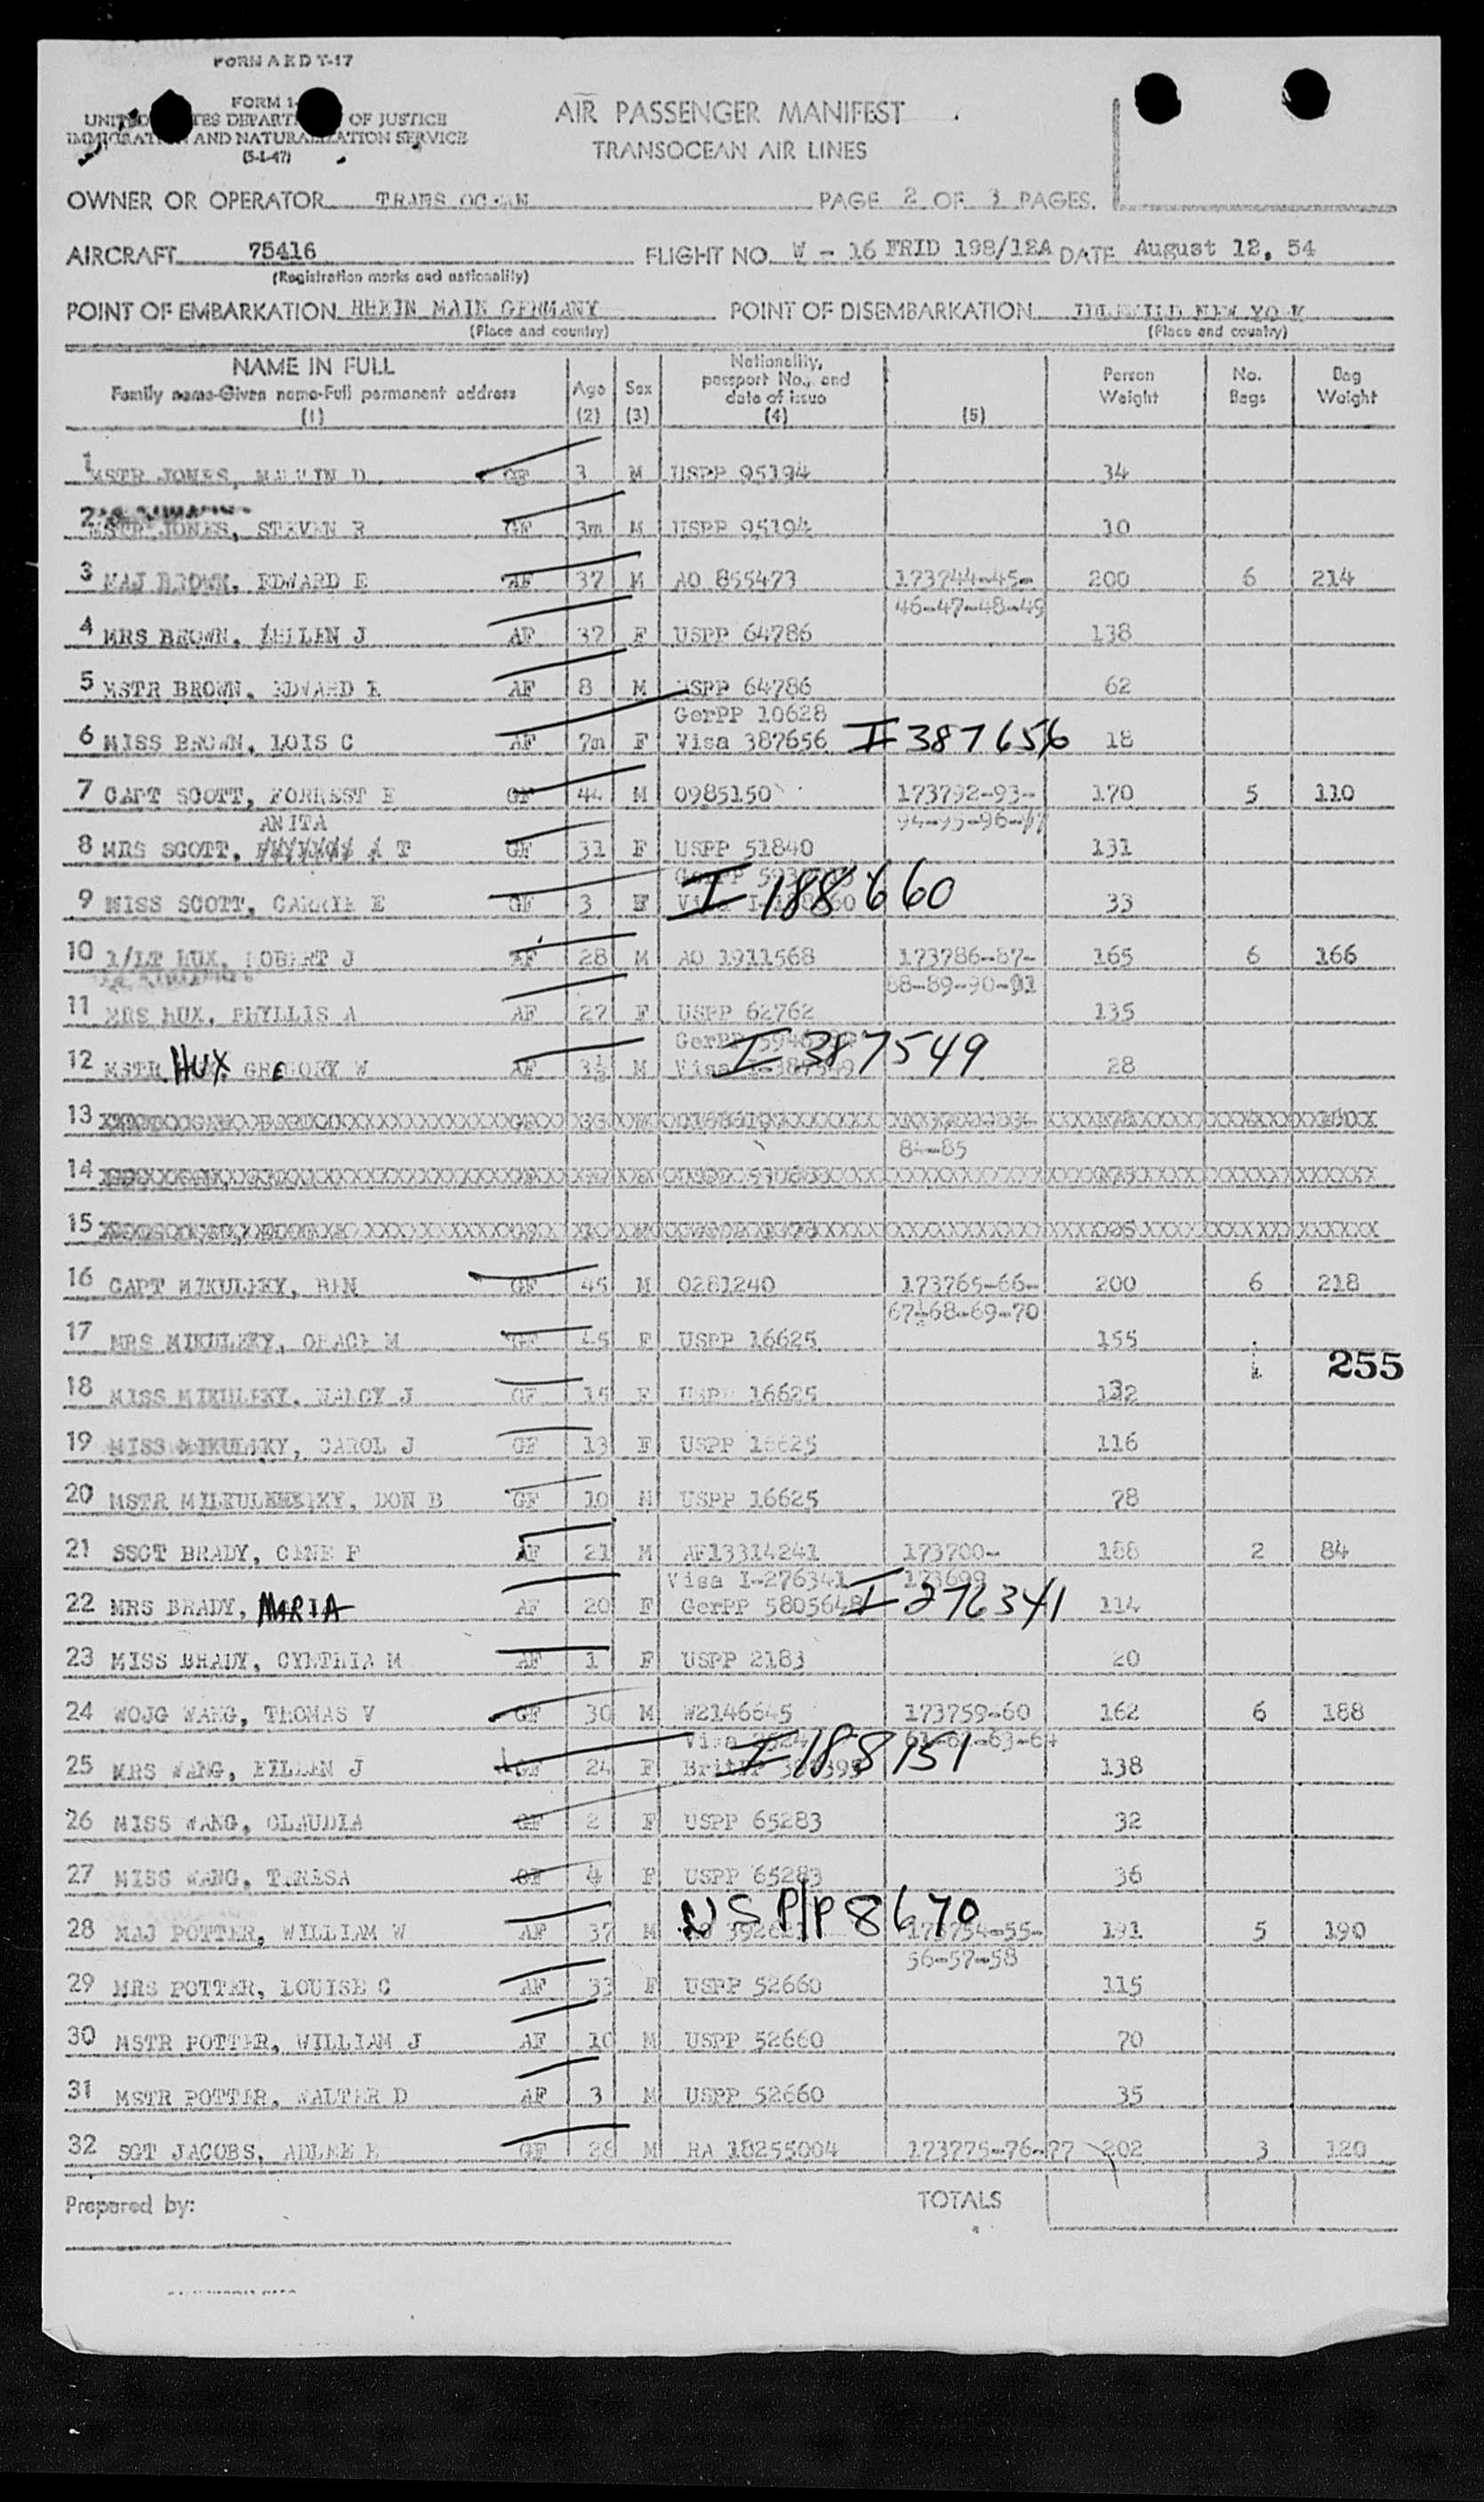 FORM A E D T-17
FORM I-
UNITED STATES DEPARTMENT OF JUSTICE
IMMIGRATION AND NATURALIZATION SERVICE
(5-1-47)
AIR PASSENGER MANIFEST
TRANSOCEAN AIR LINES
OWNER OR OPERATOR TRANS OCEAN PAGE 2 OF 3 PAGES.
AIRCRAFT 75416 FLIGHT NO. W - 16 FRID 198/12A DATE August 12, 54
(Registration marks and nationality)
POINT OF EMBARKATION RHEIN MAIN GERMANY POINT OF DISEMBARKATION IDLEWILD NEW YO K
(Place and country) (Place and country)
NAME IN FULL Nationality, Person No. Bag
Family name-Given name-Full permanent address Age Sex passport No., and Weight Bags Weight
date of issue
(1) (2) (3) (4) (5)
1 MSTR JONES, D GF 3 M USPP 95194 34
2 MSTR JONES, STEVEN R GF 3m M USPP 95194 10
3 MAJ BROWN, EDWARD E AF 37 M AO 855473 173744-45- 200 6 214
46-47-48-49
4 MRS BROWN, HELEN J AF 37 F USPP 64786 138
5 MSTR BROWN, EDWARD E AF 8 M USPP 64786 62
GerPP 10628
6 MISS BROWN, LOIS C AF 7m F Visa 387656 I 387656 18
7 CAPT SCOTT, FORREST E GF 44 M 0985150 173792-93- 170 5 110
ANITA 94-95-96-97
8 MRS SCOTT, T GF 31 F USPP 51840 131
GerPP
9 MISS SCOTT, CARRIE E GF 3 F Visa I-188660 I 188660 33
10 1/LT HUX, ROBERT J AF 28 M AO 1911568 173786-87- 165 6 166
88-89-90-91
11 MRS HUX, PHYLLIS A AF 27 F USPP 62762 135
GerPP
12 MSTR HUX GREGORY W AF 3½ M Visa I-387549 I 387549 28
13
84-85
14
15
16 CAPT MIKULEKY, BEN GF 45 M 0281240 173765-66- 200 6 218
67-68-69-70
17 MRS MIKULEKY, GRACE M GF 45 F USPP 16625 155
255
18 MISS MIKULEKY, NANCY J GF 15 F USPP 16625 132
19 MISS MIKULEKY, CAROL J GF 13 F USPP 16625 116
20 MSTR DON B GF 10 M USPP 16625 78
21 SSGT BRADY, GENE F AF 21 M AF13314241 173700- 188 2 84
Visa I-276341 173699
22 MRS BRADY, MARIA AF 20 F GerPP 5805648 I 276341 114
23 MISS BRADY, CYNTHIA M AF 1 F USPP 2183 20
24 WOJG WANG, THOMAS V GF 30 M W2146645 173759-60 162 6 188
Visa 61-62-63-64
25 MRS WANG, EILEEN J GF 24 F BritPP I 188151 138
26 MISS WANG, CLAUDIA GF 2 F USPP 65283 32
27 MISS WANG, TERESA GF 4 F USPP 65283 36
US P/P 8670
28 MAJ POTTER, WILLIAM W AF 37 M 173754-55- 191 5 190
56-57-58
29 MRS POTTER, LOUISE C AF 33 F USPP 52660 115
30 MSTR POTTER, WILLIAM J AF 10 M USPP 52660 70
31 MSTR POTTER, WALTER D AF 3 M USPP 52660 35
32 SGT JACOBS, ADLEE E GF 28 M RA 18255004 173775-76-77 202 3 120
Prepared by: TOTALS